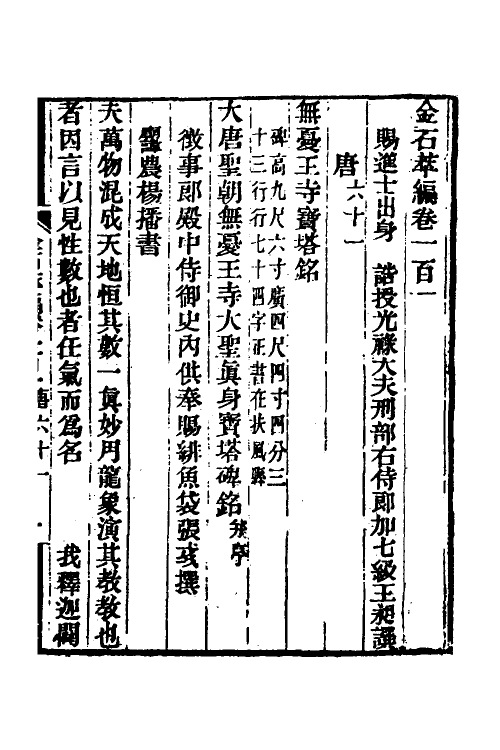 金石萃編卷一百一
賜進士出身　誥授光祿大夫刑部右侍郎加七級王昶譔
唐六十一
無憂王寺寶塔銘
碑高九尺六寸廣四尺四寸四分三
十三行行七十四字正書在扶風縣
大唐聖朝無憂王寺大聖眞身寶塔碑銘并序
徵事郎殿中侍御史內供奉賜緋魚袋張彧撰
弘農楊播書
夫萬物混成天地恒其數一眞妙用龍象演其教教也
者因言以見性數也者任氣而爲名　　我釋迦闡